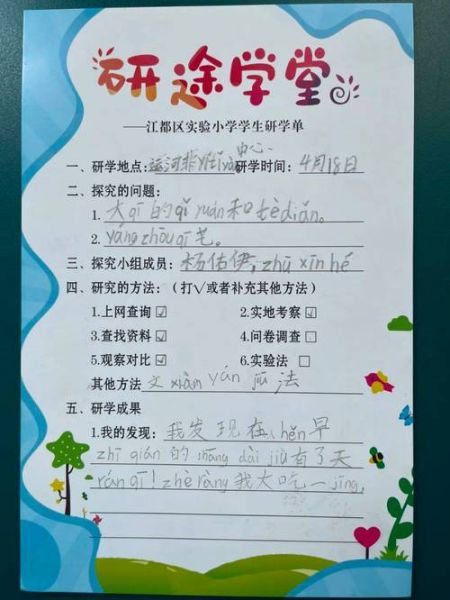 研途学堂
——江都区实验小学学生研学单
中心.
一、研学地点:运河非 研学时间: 4月18日
二、探究的问题:
1. 大qī的qǐ yuán和tè diǎn。
2. yáng zhōu qī 艺。
三、探究小组成员: 杨佑伊, zhū xīn hé
四、研究的方法:(打√或者补充其他方法)
1.上网查询 ☑ 2.实地考察 ☑
3.查找资料 ☑ 4.问卷调查 ☐
5.观察对比 ☑ 6.实验法 ☐
其他方法 文 xiàn yán jiū 法
五、研学成果
1.我的发现: 我发现在 hěn 早
zhī qián 的 shāng dài jiù 有了天
rán qī! zhè ràng 我大吃一 jīng,